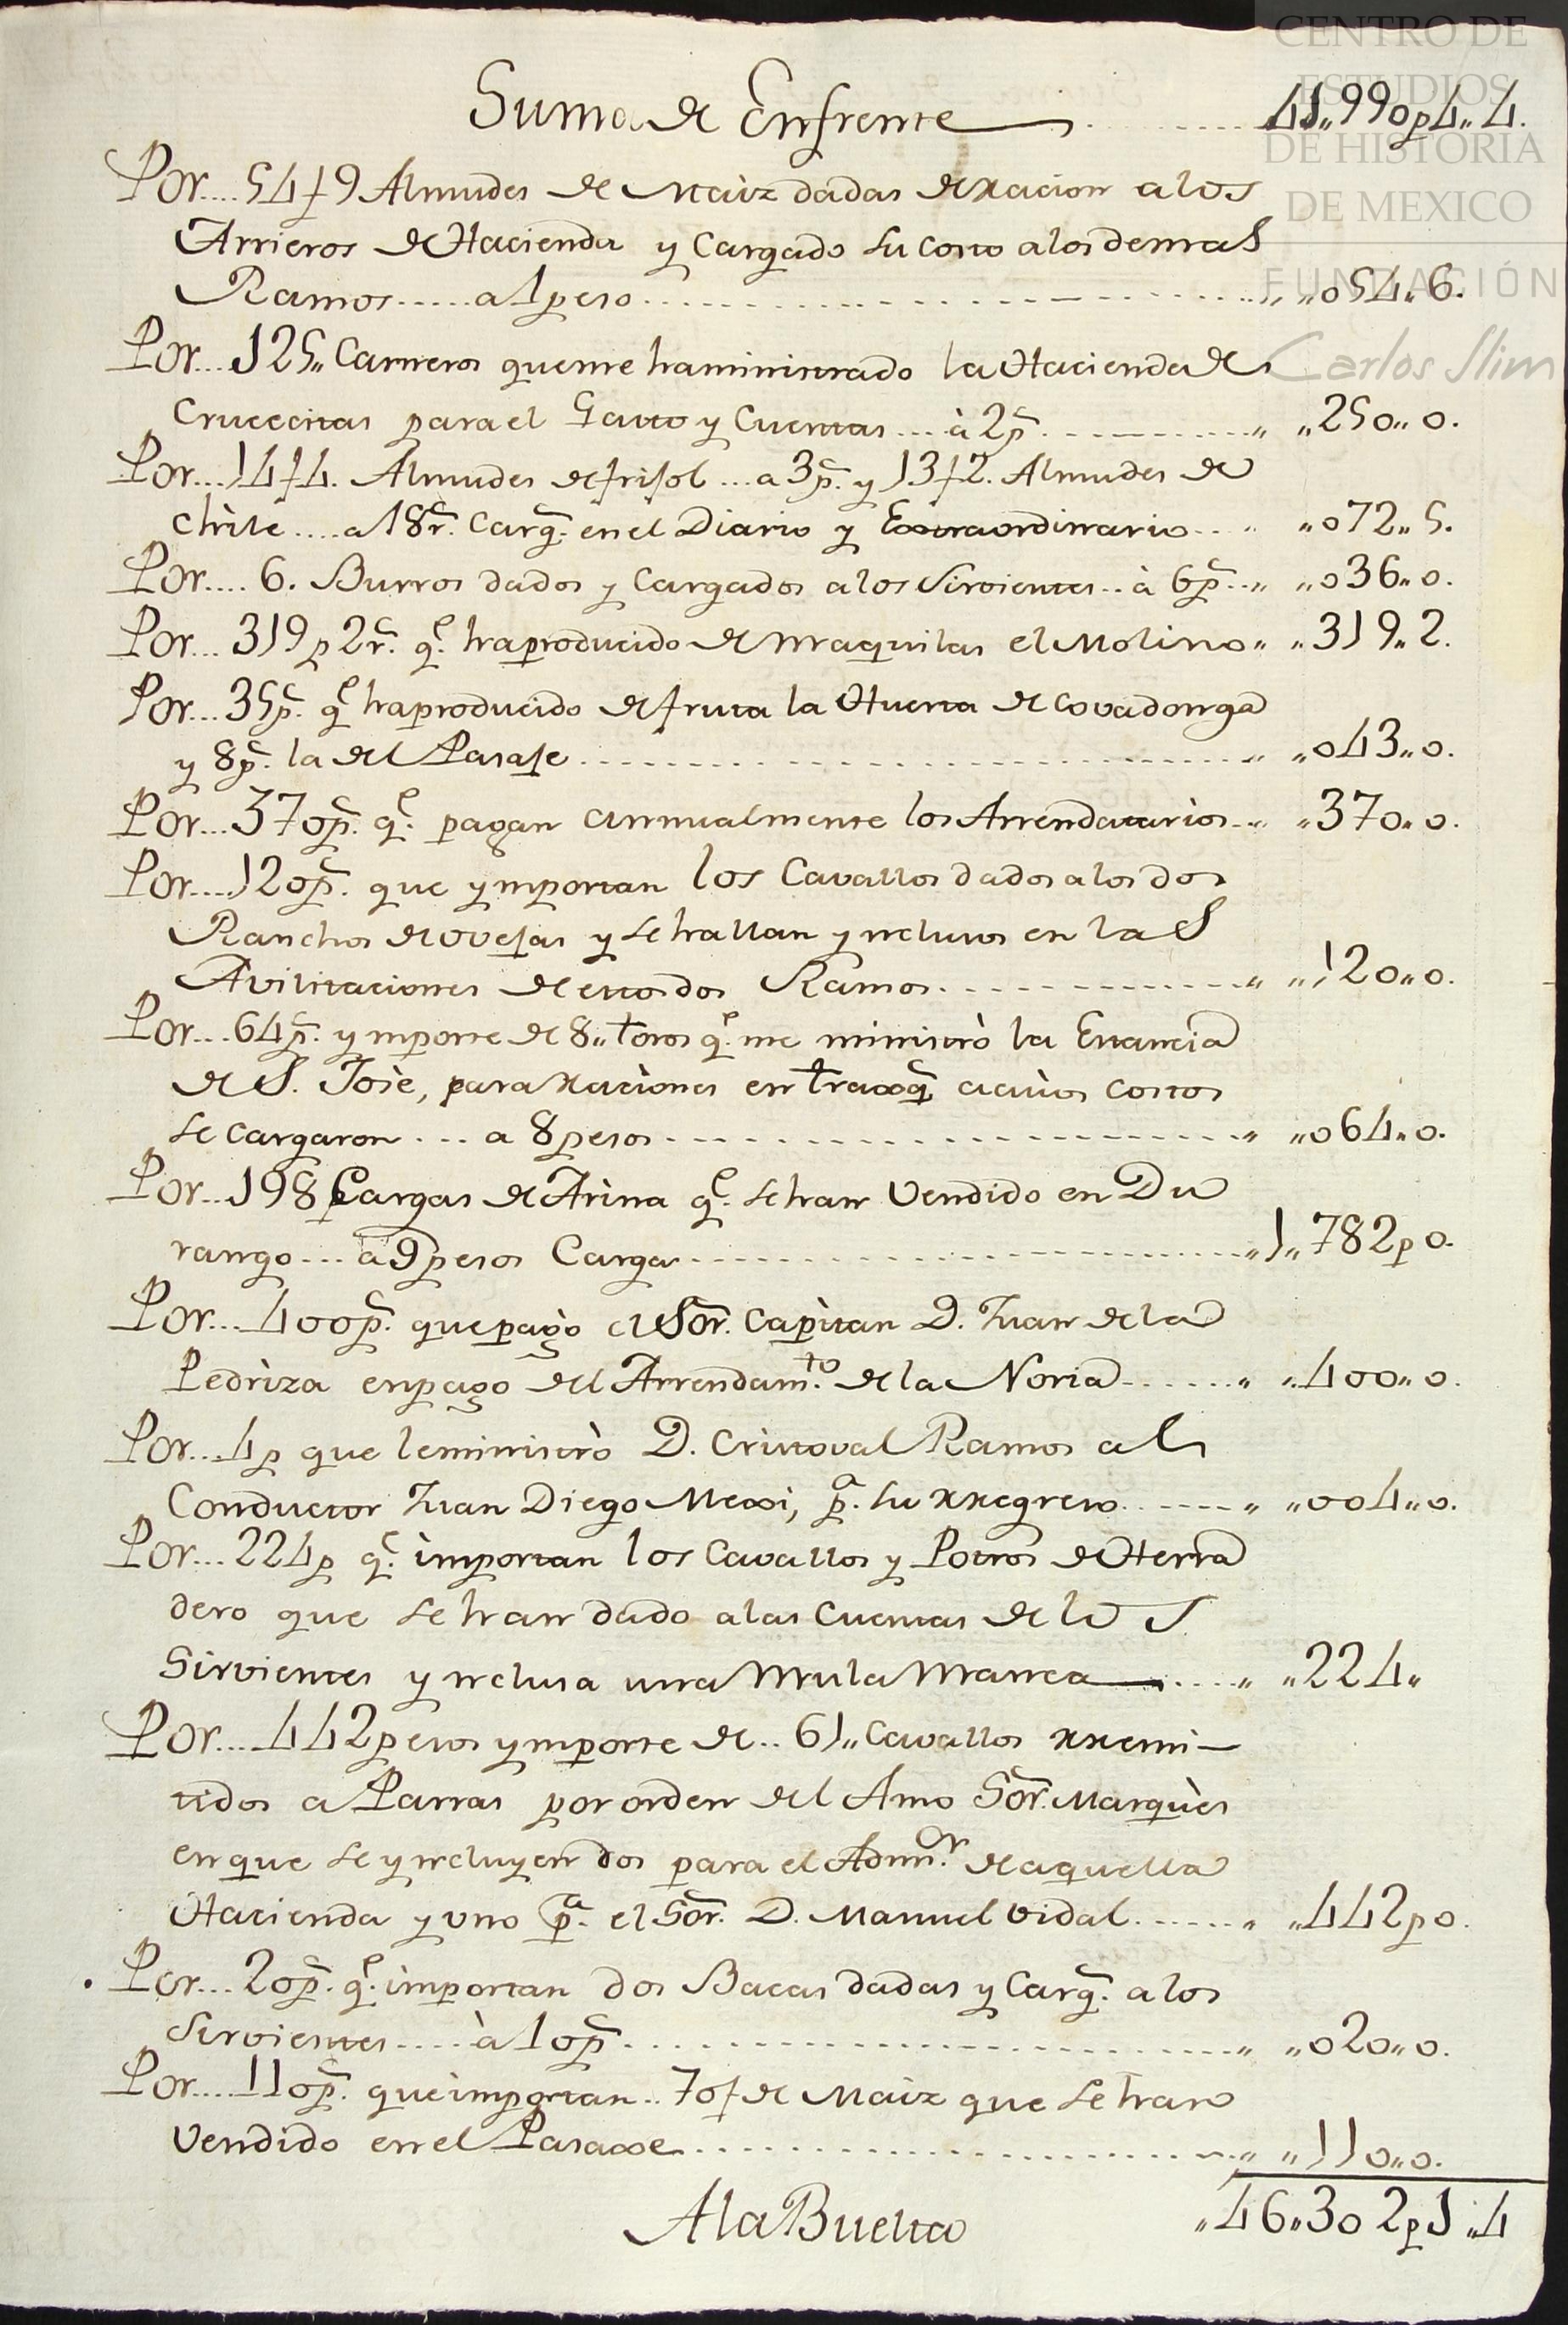 CENTRO DE
ESTUDIOS
DE HISTORIA
DE MEXICO
FUNDACIÓN
Carlos Slim
Suma de Enfrente ........ 41,,990p4,,4.
Por....54f9 Almudes de Maiz dadas de racion a los
Arrieros de Hacienda y Cargado su costo a los demas
Ramos.....a 1 peso ........ ,,054,,6.
Por...125,, Carneros que me ha ministrado la Hacienda de
Crucecitas para el Gasto y Cuentas...à 2ps. ........ ,,250,,0.
Por...14f4. Almudes de frisol...a 3ps. y 13f2. Almudes de
chile....a 18rs. Cargs. en el Diario y Extraordinario... ,,072,,5.
Por....6. Burros dados y Cargados a los Sirvientes..à 6ps... ,,036,,0.
Por...319p 2rs. qe. ha producido de maquilas el Molino ,,319,,2.
Por...35ps. qe. ha producido de fruta la Huerta de Covadonga
y 8ps. la del Pasaje ........ ,,043,,0.
Por...370ps. qe. pagan annualmente los Arrendatarios... ,,370,,0.
Por....120ps. que ymportan los Cavallos dados a los dos
Ranchos de ovejas y se hallan ynclusos en las
Avilitaciones de estos dos Ramos. ........ ,,120,,0.
Por...64ps. ymporte de 8,, toros qe. me ministrò la Estancia
de S. Josè, para raciones en traxqs. a cuios costos
se cargaron...a 8 pesos ........ ,,064,,0.
Por...198 Cargas de Arina qe. se han Vendido en Du
rango...a 9 pesos Carga ........ ,,1,,782p0.
Por...400ps. que pagò el Sor. Capitan D. Juan de la
Pedriza en pago del Arrendamto. de la Noria ........ ,,400,,0.
Por...4p que le ministrò D. Cristoval Ramos al
Conductor Juan Diego Mexi, pa. su rregreso ........ ,,004,,0.
Por...224p qe. importan los Cavallos y Potros de Herra
dero que se han dado a las Cuentas de los
Sirvientes ynclusa una Mula Manca ........ ,,224,,
Por...442 pesos ymporte de..61,, Cavallos rremi-
tidos a Parras por orden del Amo Sor. Marquès
en que se yncluyen dos para el Admor. de aquella
Hacienda y uno pa. el Sor. D. Manuel Vidal. ........ ,,442p0.
Por...20ps. qe. importan dos Bacas dadas y Cargs. a los
Sirvientes....à 10ps. ........ ,,020,,0.
Por....110ps. que importan..70f de Maiz que se han
Vendido en el Pasaxe ........ ,,110,,0.
A la Buelta ,,46,,302p1,,4